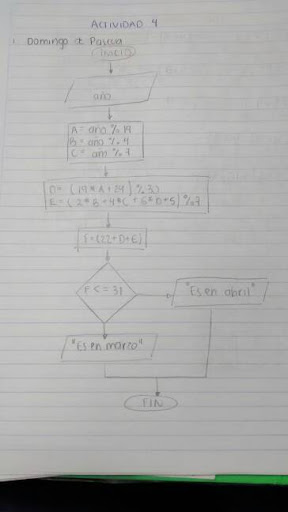 ACTIVIDAD 4
1. Domingo de Pascua
INICIO
año
A = año % 19
B = año % 4
C = año % 7
D = (19 * A + 24) % 30
E = (2 * B + 4 * C + 6 * D + 5) % 7
F = (22 + D + E)
F <= 31
"Es en abril"
"Es en marzo"
FIN